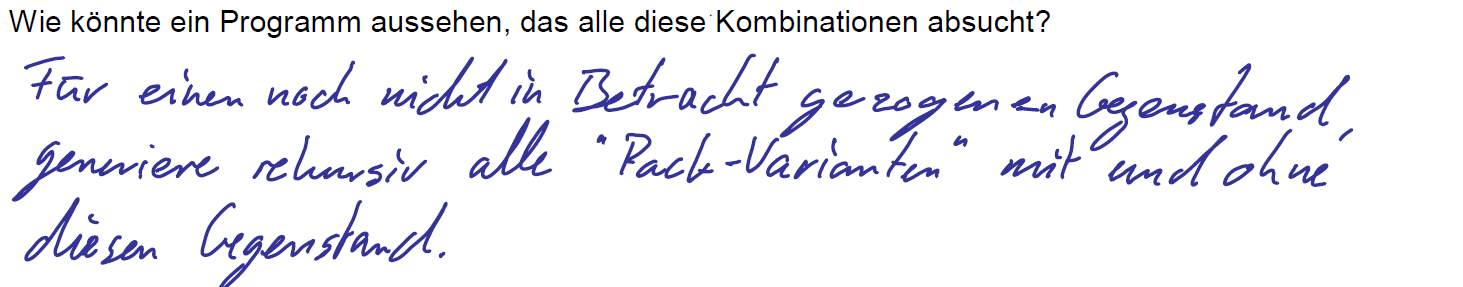 Wie könnte ein Programm aussehen, das alle diese Kombinationen absucht?
Für einen noch nicht in Betracht gezogenen Gegenstand,
generiere rekursiv alle "Pack-Varianten" mit und ohne
diesen Gegenstand.